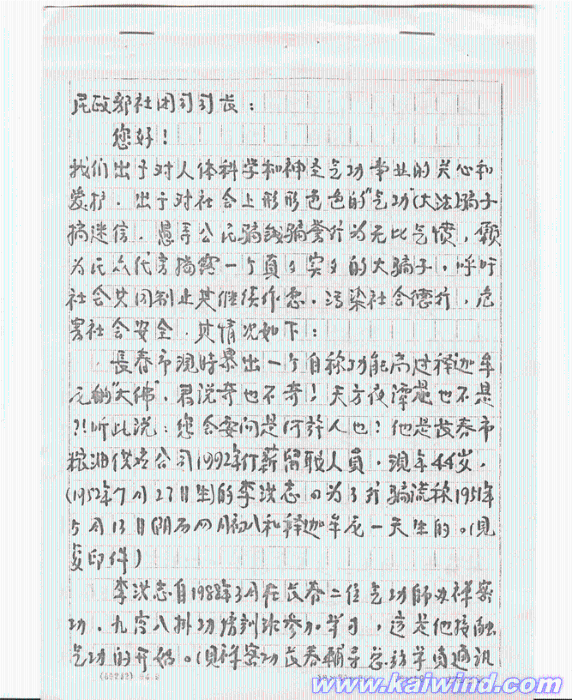 民政部社团司司长：
您好！
我们出于对人体科学和神圣气功事业的关心和
爱护，出于对社会上形形色色的"气功"(大法)骗子
搞迷信，愚弄公民骗钱骗誉行为无比气愤，愿
为民众代言揭露一个真真实实的大骗子，呼吁
社会共同制止其继续作恶，污染社会德行，危
害社会安全。其情况如下：
長春市现时暴出一个自称功能高过释迦牟
尼的"大佛"，君说奇也不奇！天方夜谭也不是
?!听此说：您会要问是何許人也？他是長春市
粮油供应公司1992年停薪留职人員，现年44岁，
(1952年7月27日生)的李洪志。为了行骗谎称1951年
5月13日(阴历四月初八和释迦牟尼一天生的。(见
复印件)
李洪志自1988年3月在長春二位气功師办禅密
功、九宫八卦功培训班参加学习，这是他接触
气功的开始。(见禅密功長春輔导总站学员通讯
www.kaiwind.com